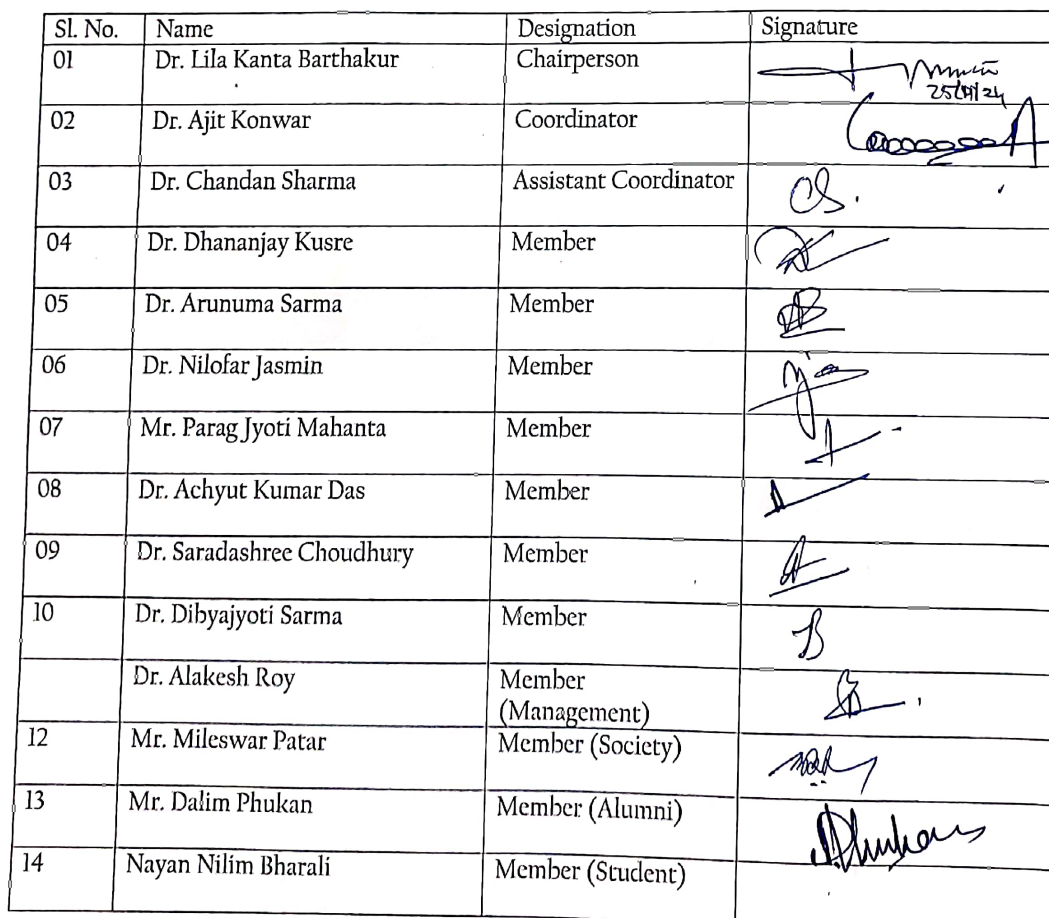 Sl. No. Name Designation Signature
01 Dr. Lila Kanta Barthakur Chairperson
02 Dr. Ajit Konwar Coordinator
03 Dr. Chandan Sharma Assistant Coordinator
04 Dr. Dhananjay Kusre Member
05 Dr. Arunuma Sarma Member
06 Dr. Nilofar Jasmin Member
07 Mr. Parag Jyoti Mahanta Member
08 Dr. Achyut Kumar Das Member
09 Dr. Saradashree Choudhury Member
10 Dr. Dibyajyoti Sarma Member
Dr. Alakesh Roy Member
(Management)
12 Mr. Mileswar Patar Member (Society)
13 Mr. Dalim Phukan Member (Alumni) Phukan
14 Nayan Nilim Bharali Member (Student)